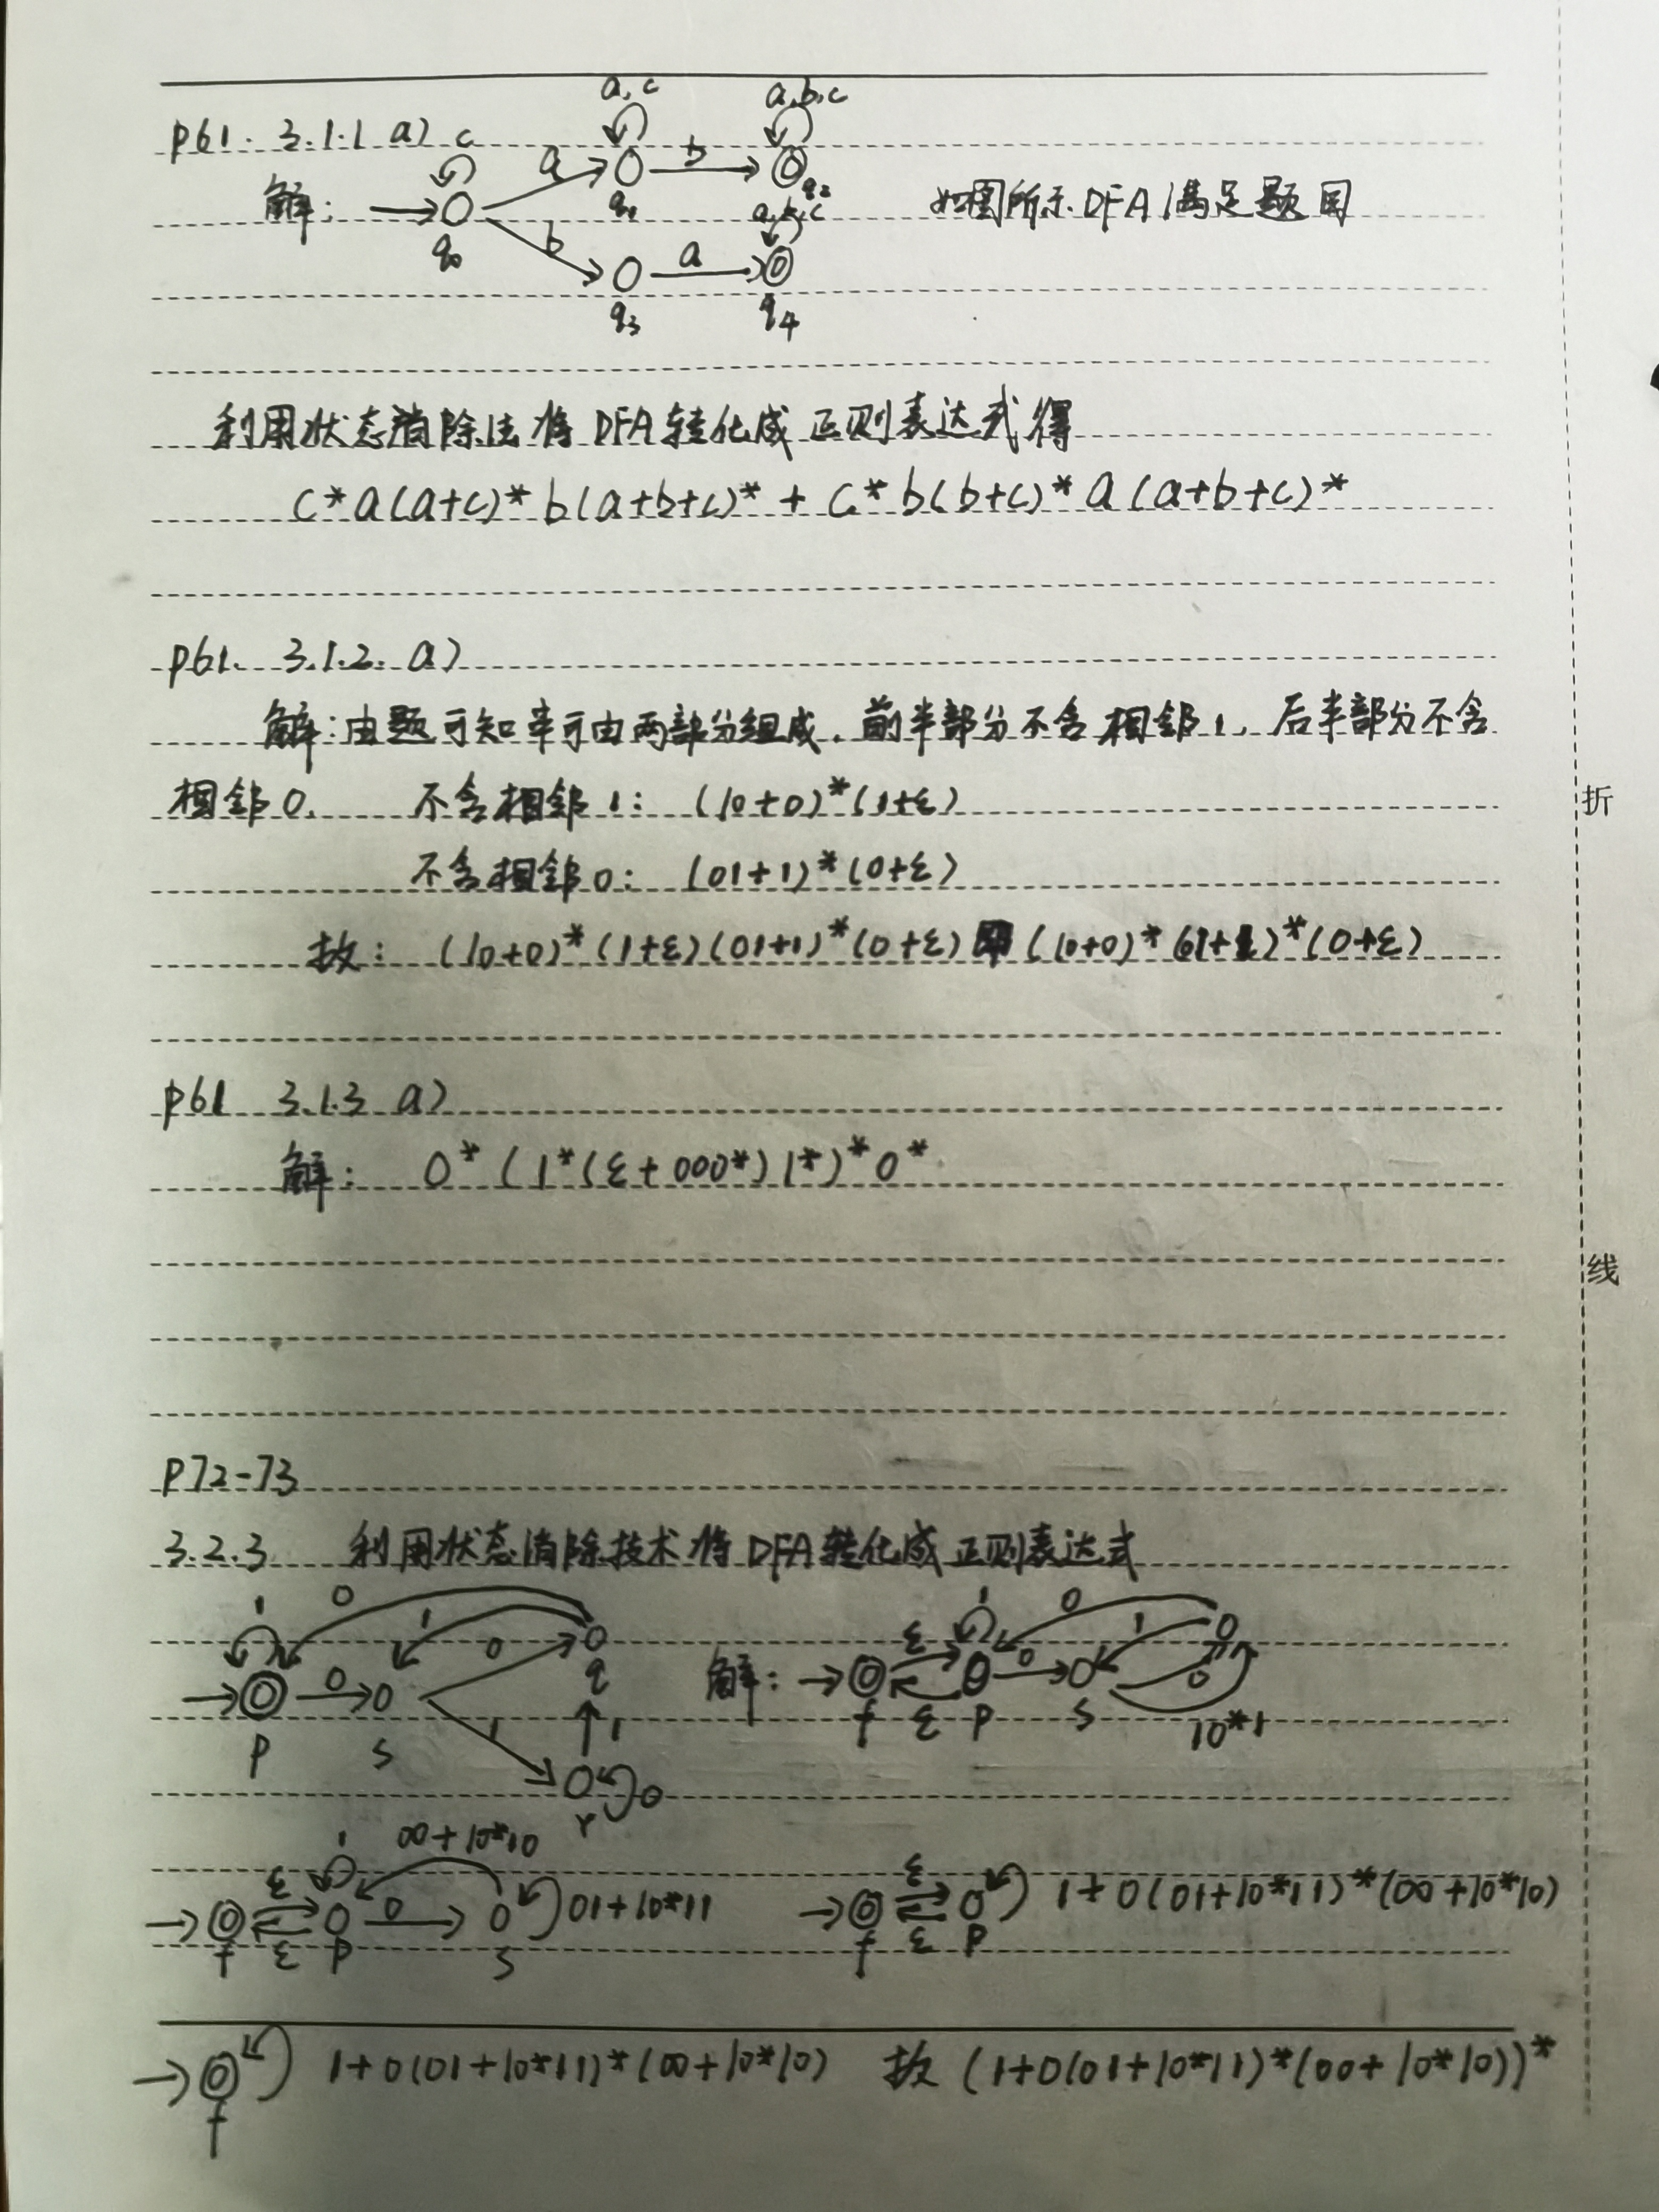 a,c a,b,c
P61. 3.1.1 a) c
a b
解: q₀ q₁ q₂ 如图所示DFA满足题目
a,b,c
b a
q₃ q₄
利用状态消除法将DFA转化成正则表达式得
c*a(a+c)*b(a+b+c)* + c*b(b+c)*a(a+b+c)*
P61. 3.1.2. a)
解:由题可知串可由两部分组成.前半部分不含相邻1,后半部分不含
相邻0. 不含相邻1: (10+0)*(1+ε)
不含相邻0: (01+1)*(0+ε)
故: (10+0)*(1+ε)(01+1)*(0+ε)即(10+0)*(01+1)*(0+ε)
P61 3.1.3 a)
解: 0*(1*(ε+000*)1*)*0*
P72-73
3.2.3 利用状态消除技术将DFA转化成正则表达式
1 0 1 0 0 q 1 0 ε 1 0 1
解: 0 0
P S 1 1 f ε P S 10*1
r 0
1 00+10*10
ε 0 01+10*11 ε 1+0(01+10*11)*(00+10*10)
f ε P S f ε P
1+0(01+10*11)*(00+10*10) 故 (1+0(01+10*11)*(00+10*10))*
f
折
线